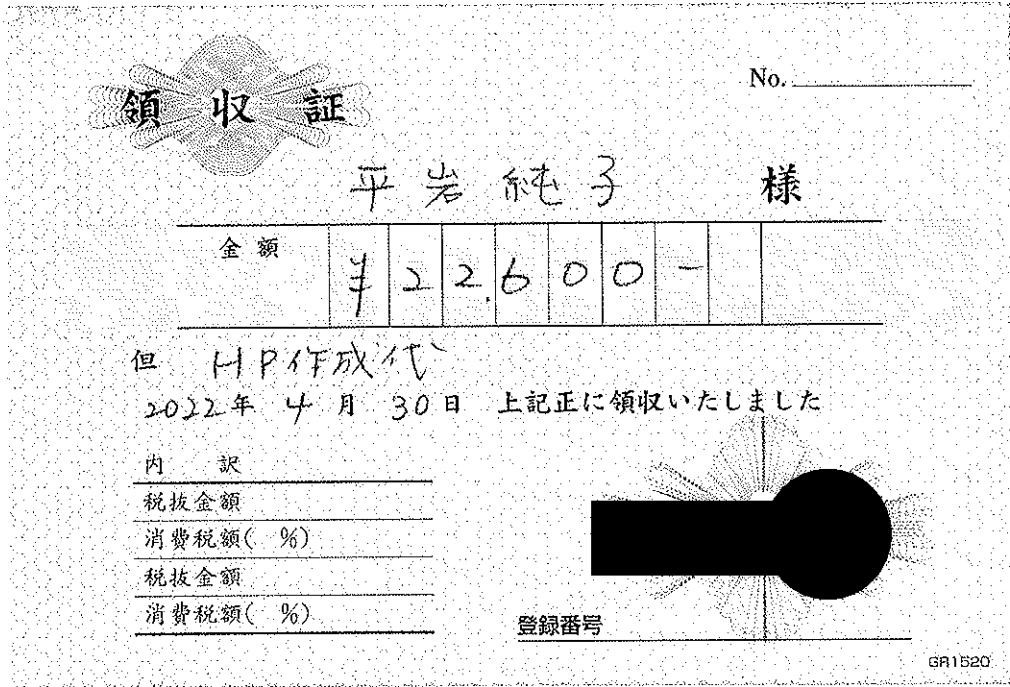 No.
領収証
平岩純子 様
金額 ¥22,600-
但 HP作成代
2022年 4月 30日 上記正に領収いたしました
内訳
税抜金額
消費税額( %)
税抜金額
消費税額( %)
登録番号
GR1520